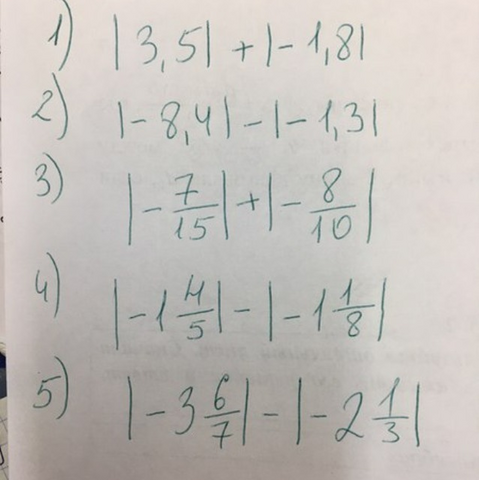 1) |3,5| + |-1,8|
2) |-8,4| - |-1,3|
3) |-7/15| + |-8/10|
4) |-1 4/5| - |-1 1/8|
5) |-3 6/7| - |-2 1/3|